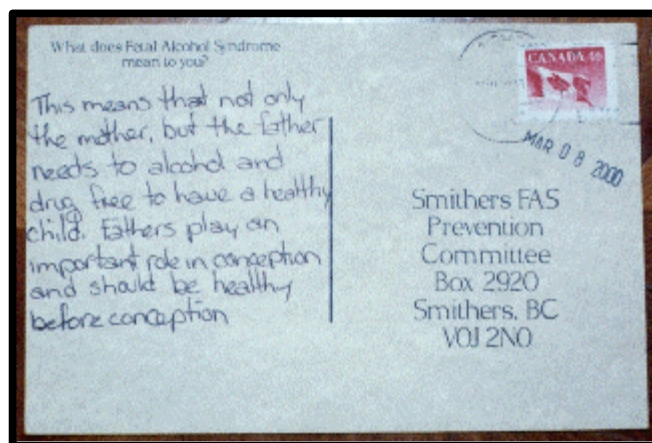 What does Fetal Alcohol Syndrome
mean to you?
This means that not only
the mother, but the father
needs to alcohol and
drug free to have a healthy
child. Fathers play an
important role in conception
and should be healthy
before conception
CANADA 46
MAR 08 2000
Smithers FAS
Prevention
Committee
Box 2920
Smithers, BC
V0J 2N0